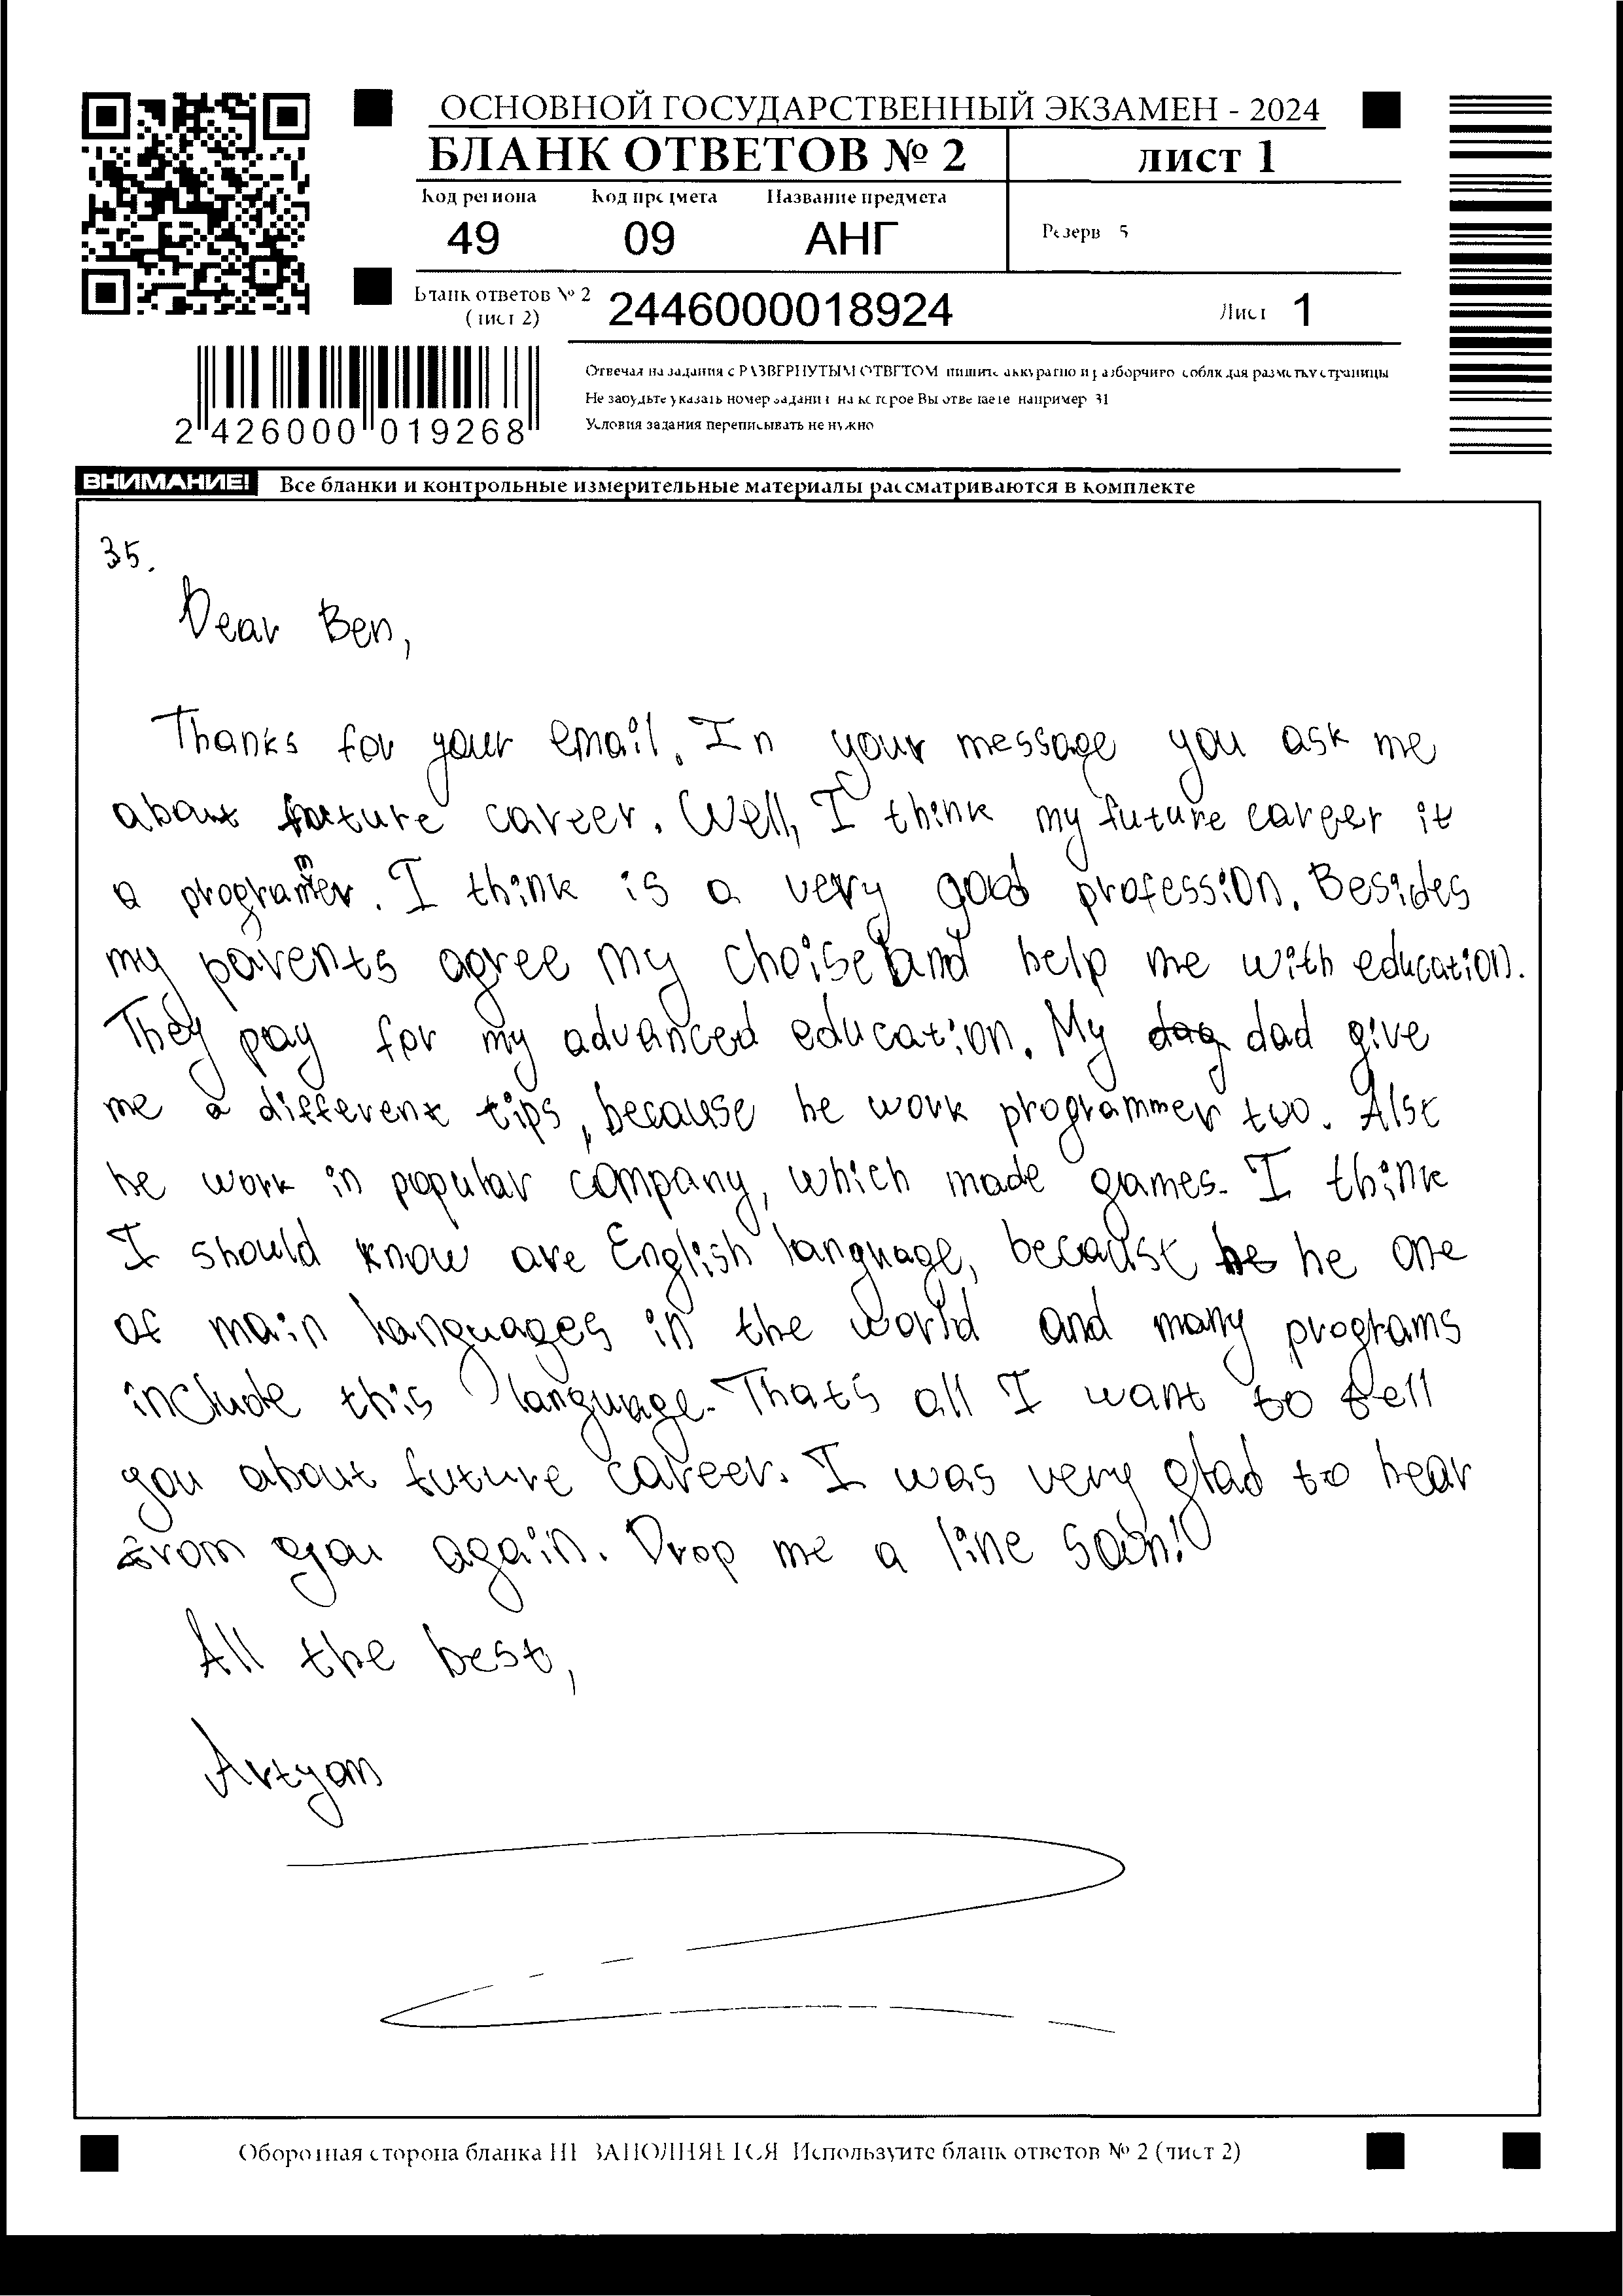 ОСНОВНОЙ ГОСУДАРСТВЕННЫЙ ЭКЗАМЕН - 2024
БЛАНК ОТВЕТОВ № 2
ЛИСТ 1
Код региона Код предмета Название предмета
49 09 АНГ
Резерв 5
Бланк ответов № 2
(лист 2)
2446000018924
Лист 1
2 426000 019268
Отвечая на задания с РАЗВЕРНУТЫМ ОТВЕТОМ пишите аккуратно и разборчиво соблюдая разметку страницы
Не забудьте указать номер задания на которое Вы отвечаете например 31
Условия задания переписывать не нужно
ВНИМАНИЕ! Все бланки и контрольные измерительные материалы рассматриваются в комплекте
35.
Dear Ben,
Thanks for your email. In your message you ask me
about future career. Well, I think my future career it
a programmer. I think is a very good profession. Besides
my parents agree my choise and help me with education.
They pay for my advanced education. My dag dad give
me a different tips, because he work programmer too. Also
he work in popular company, which made games. I think
I should know are English language, because he he one
of main languages in the world and many programs
include this language. That's all I want to tell
you about future career. I was very glad to hear
from you again. Drop me a line soon!
All the best,
Artyom
Оборотная сторона бланка НЕ ЗАПОЛНЯЕТСЯ Используйте бланк ответов № 2 (лист 2)